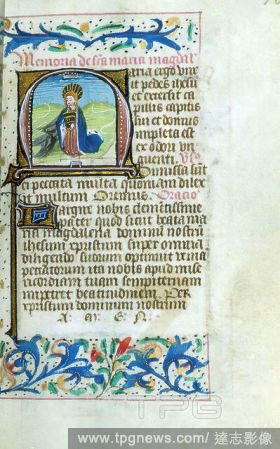 Memoria de sca maria magdal
aria ergo vnx
it pedes ihesu
et extersit ca
pillis capitis
sui et domus
impleta est
ex odore vn
guenti. Vs
Dimissa sūt
ei peccata multa quoniam dilex
it multum Oremus Oratio
Largire nobis clementissime
pater quod sicut beata ma
ria magdalena dominū nostrū
ihesum xpristum super omnia
diligendo suorum optinuit venia
peccatorum ita nobis apud mise
ricordiam tuam sempiternam
impetret beatitudinem Per
xpristum dominum nostrum
TPG
www.tpgnews.com/ 達志影像